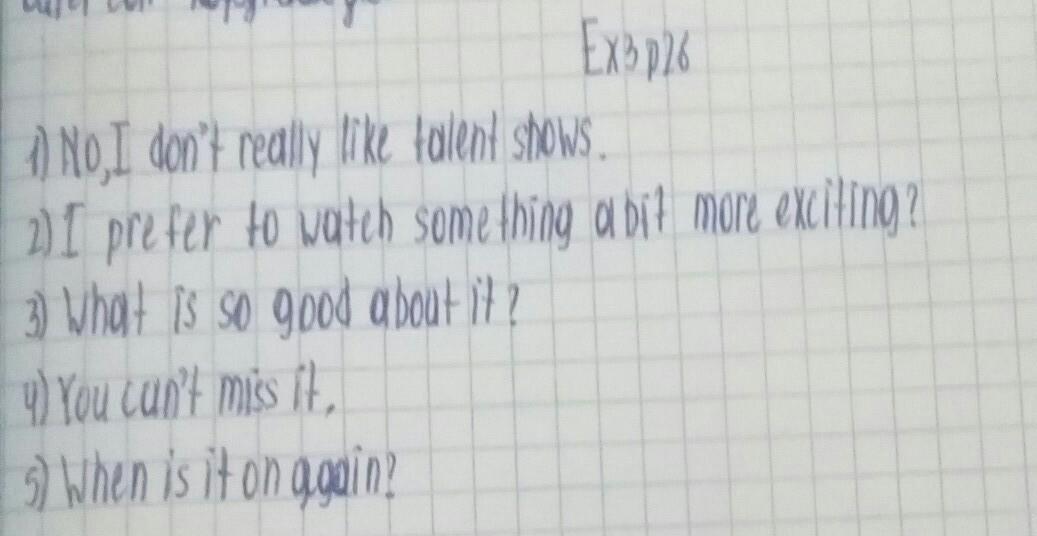 Ex3 p26
1) No, I don't really like talent shows.
2) I prefer to watch something a bit more exciting?
3) What is so good about it?
4) You can't miss it.
5) When is it on again?